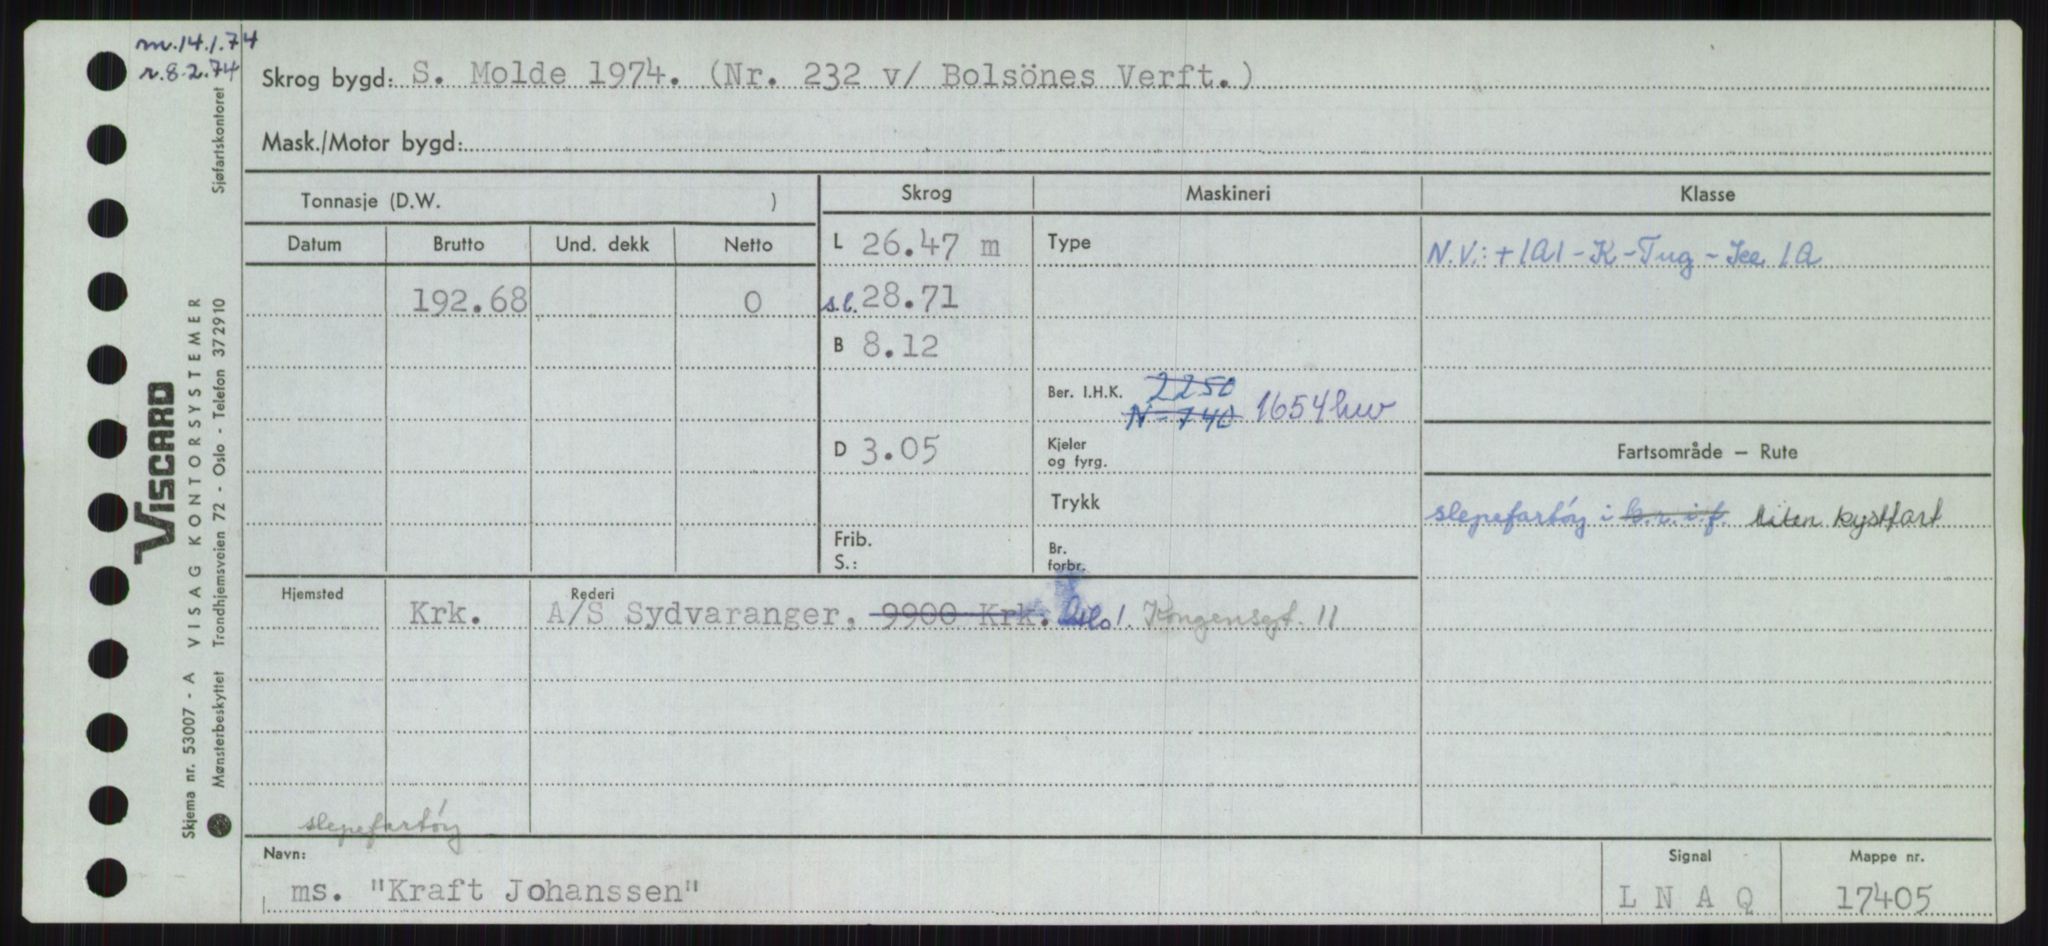 m.14.1.74
r.8.2.74
Skrog bygd: S. Molde 1974. (Nr. 232 v/ Bolsönes Verft.)
Mask./Motor bygd:
Tonnasje (D.W. )
Skrog
Maskineri
Klasse
Datum
Brutto
Und. dekk
Netto
L 26.47 m
Type
N.V.: + 1A1 - K - Tug - Ice 1A
192.68
0
s.l. 28.71
B 8.12
Ber. I.H.K. 2250
N = 740 1654 kw
D 3.05
Kjeler
og fyrg.
Fartsområde — Rute
Trykk
slepefartöy i k.r.i.f. liten kystfart
Frib.
S.:
Br.
forbr.
Hjemsted
Rederi
Krk.
A/S Sydvaranger, 9900 Krk. Oslo 1. Kongensgt. 11
slepefartöy
Navn:
Signal
Mappe nr.
ms. "Kraft Johanssen"
L N A Q
17405
Sjøfartskontoret
VISCARD
VISAG KONTORSYSTEMER
Skjema nr. 53007 - A
Mønsterbeskyttet
Trondhjemsveien 72 - Oslo - Telefon 372910